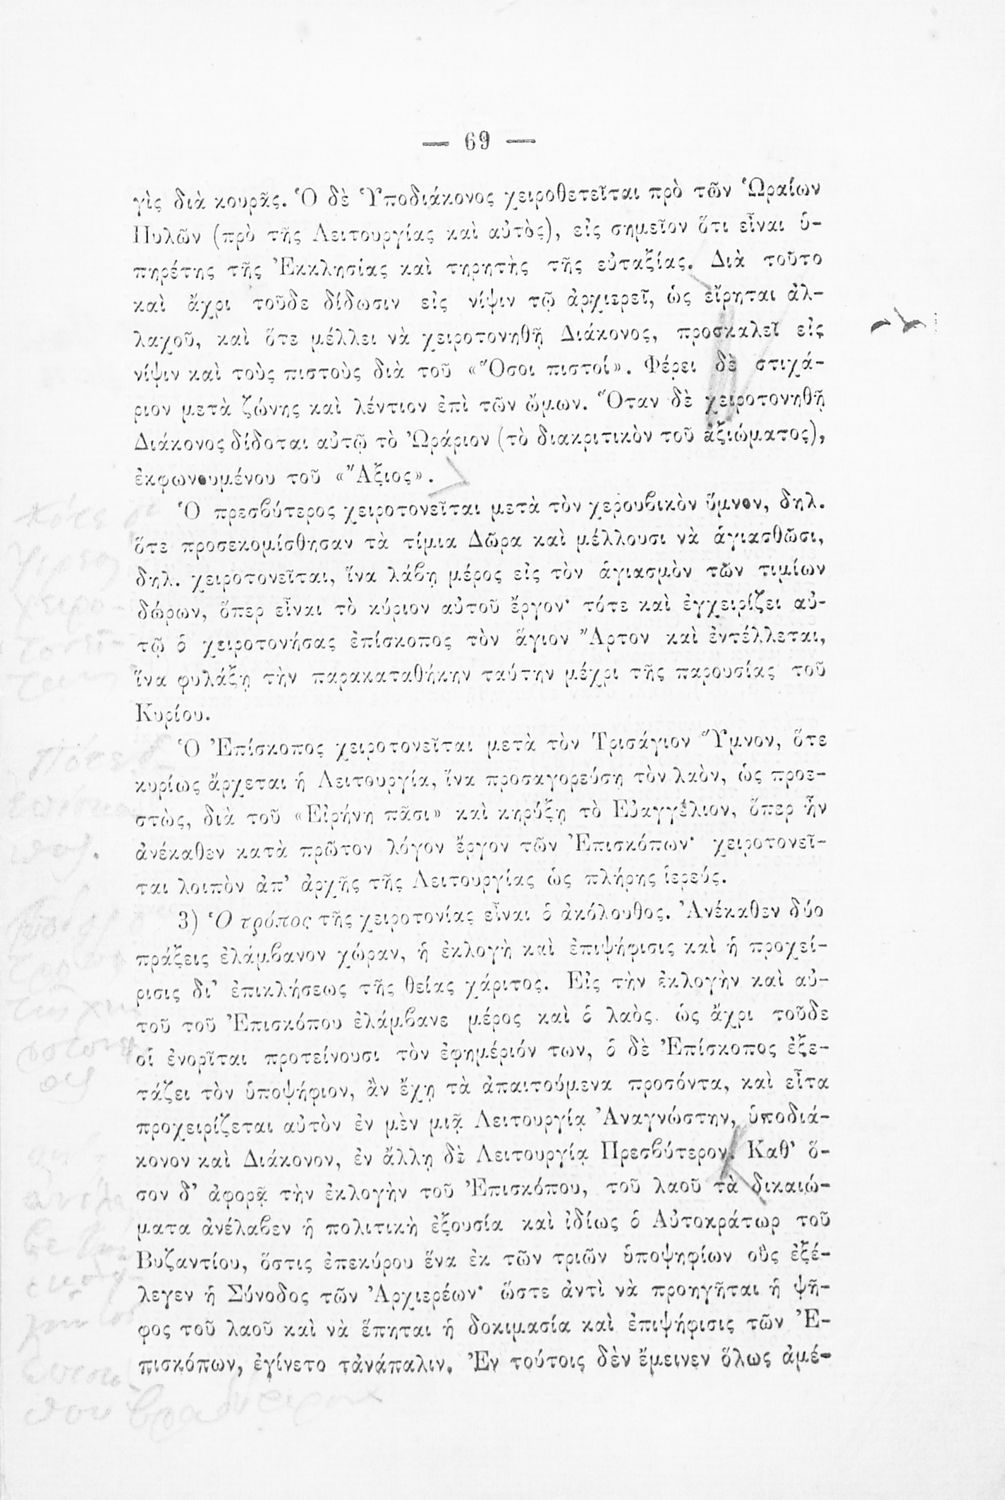 — 69 —
γὶς διὰ κουρᾶς. Ὁ δὲ Ὑποδιάκονος χειροθετεῖται πρὸ τῶν Ὡραίων
Πυλῶν (πρὸ τῆς Λειτουργίας καὶ αὐτὸς), εἰς σημεῖον ὅτι εἶναι ὑ-
πηρέτης τῆς Ἐκκλησίας καὶ τηρητὴς τῆς εὐταξίας. Διὰ τοῦτο
καὶ ἄχρι τοῦδε δίδωσιν εἰς νίψιν τῷ ἀρχιερεῖ, ὡς εἴρηται ἀλ-
λαχοῦ, καὶ ὅτε μέλλει νὰ χειροτονηθῇ Διάκονος, προσκαλεῖ εἰς
νίψιν καὶ τοὺς πιστοὺς διὰ τοῦ «Ὅσοι πιστοί». Φέρει δὲ στιχά-
ριον μετὰ ζώνης καὶ λέντιον ἐπὶ τῶν ὤμων. Ὅταν δὲ χειροτονηθῇ
Διάκονος δίδοται αὐτῷ τὸ Ὠράριον (τὸ διακριτικὸν τοῦ ἀξιώματος),
ἐκφωνουμένου τοῦ «Ἄξιος».
Ὁ πρεσβύτερος χειροτονεῖται μετὰ τὸν χερουβικὸν ὕμνον, δηλ.
ὅτε προσεκομίσθησαν τὰ τίμια Δῶρα καὶ μέλλουσι νὰ ἁγιασθῶσι,
δηλ. χειροτονεῖται, ἵνα λάβῃ μέρος εἰς τὸν ἁγιασμὸν τῶν τιμίων
δώρων, ὅπερ εἶναι τὸ κύριον αὐτοῦ ἔργον· τότε καὶ ἐγχειρίζει αὐ-
τῷ ὁ χειροτονήσας ἐπίσκοπος τὸν ἅγιον Ἄρτον καὶ ἐντέλλεται,
ἵνα φυλάξῃ τὴν παρακαταθήκην ταύτην μέχρι τῆς παρουσίας τοῦ
Κυρίου.
Ὁ Ἐπίσκοπος χειροτονεῖται μετὰ τὸν Τρισάγιον Ὕμνον, ὅτε
κυρίως ἄρχεται ἡ Λειτουργία, ἵνα προσαγορεύσῃ τὸν λαὸν, ὡς προε-
στὼς, διὰ τοῦ «Εἰρήνη πᾶσι» καὶ κηρύξῃ τὸ Εὐαγγέλιον, ὅπερ ἦν
ἀνέκαθεν κατὰ πρῶτον λόγον ἔργον τῶν Ἐπισκόπων· χειροτονεῖ-
ται λοιπὸν ἀπ' ἀρχῆς τῆς Λειτουργίας ὡς πλήρης ἱερεύς.
3) Ὁ τρόπος τῆς χειροτονίας εἶναι ὁ ἀκόλουθος. Ἀνέκαθεν δύο
πράξεις ἐλάμβανον χώραν, ἡ ἐκλογὴ καὶ ἐπιψήφισις καὶ ἡ προχεί-
ρισις δι' ἐπικλήσεως τῆς θείας χάριτος. Εἰς τὴν ἐκλογὴν καὶ αὐ-
τοῦ τοῦ Ἐπισκόπου ἐλάμβανε μέρος καὶ ὁ λαὸς, ὡς ἄχρι τοῦδε
οἱ ἐνορῖται προτείνουσι τὸν ἐφημέριόν των, ὁ δὲ Ἐπίσκοπος ἐξε-
τάζει τὸν ὑποψήφιον, ἂν ἔχῃ τὰ ἀπαιτούμενα προσόντα, καὶ εἶτα
προχειρίζεται αὐτὸν ἐν μὲν μιᾷ Λειτουργίᾳ Ἀναγνώστην, ὑποδιά-
κονον καὶ Διάκονον, ἐν ἄλλῃ δὲ Λειτουργίᾳ Πρεσβύτερον. Καθ' ὅ-
σον δ' ἀφορᾷ τὴν ἐκλογὴν τοῦ Ἐπισκόπου, τοῦ λαοῦ τὰ δικαιώ-
ματα ἀνέλαβεν ἡ πολιτικὴ ἐξουσία καὶ ἰδίως ὁ Αὐτοκράτωρ τοῦ
Βυζαντίου, ὅστις ἐπεκύρου ἕνα ἐκ τῶν τριῶν ὑποψηφίων οὓς ἐξέ-
λεγεν ἡ Σύνοδος τῶν Ἀρχιερέων· ὥστε ἀντὶ νὰ προηγῆται ἡ ψῆ-
φος τοῦ λαοῦ καὶ νὰ ἕπηται ἡ δοκιμασία καὶ ἐπιψήφισις τῶν Ἐ-
πισκόπων, ἐγίνετο τἀνάπαλιν. Ἐν τούτοις δὲν ἔμεινεν ὅλως ἀμέ-